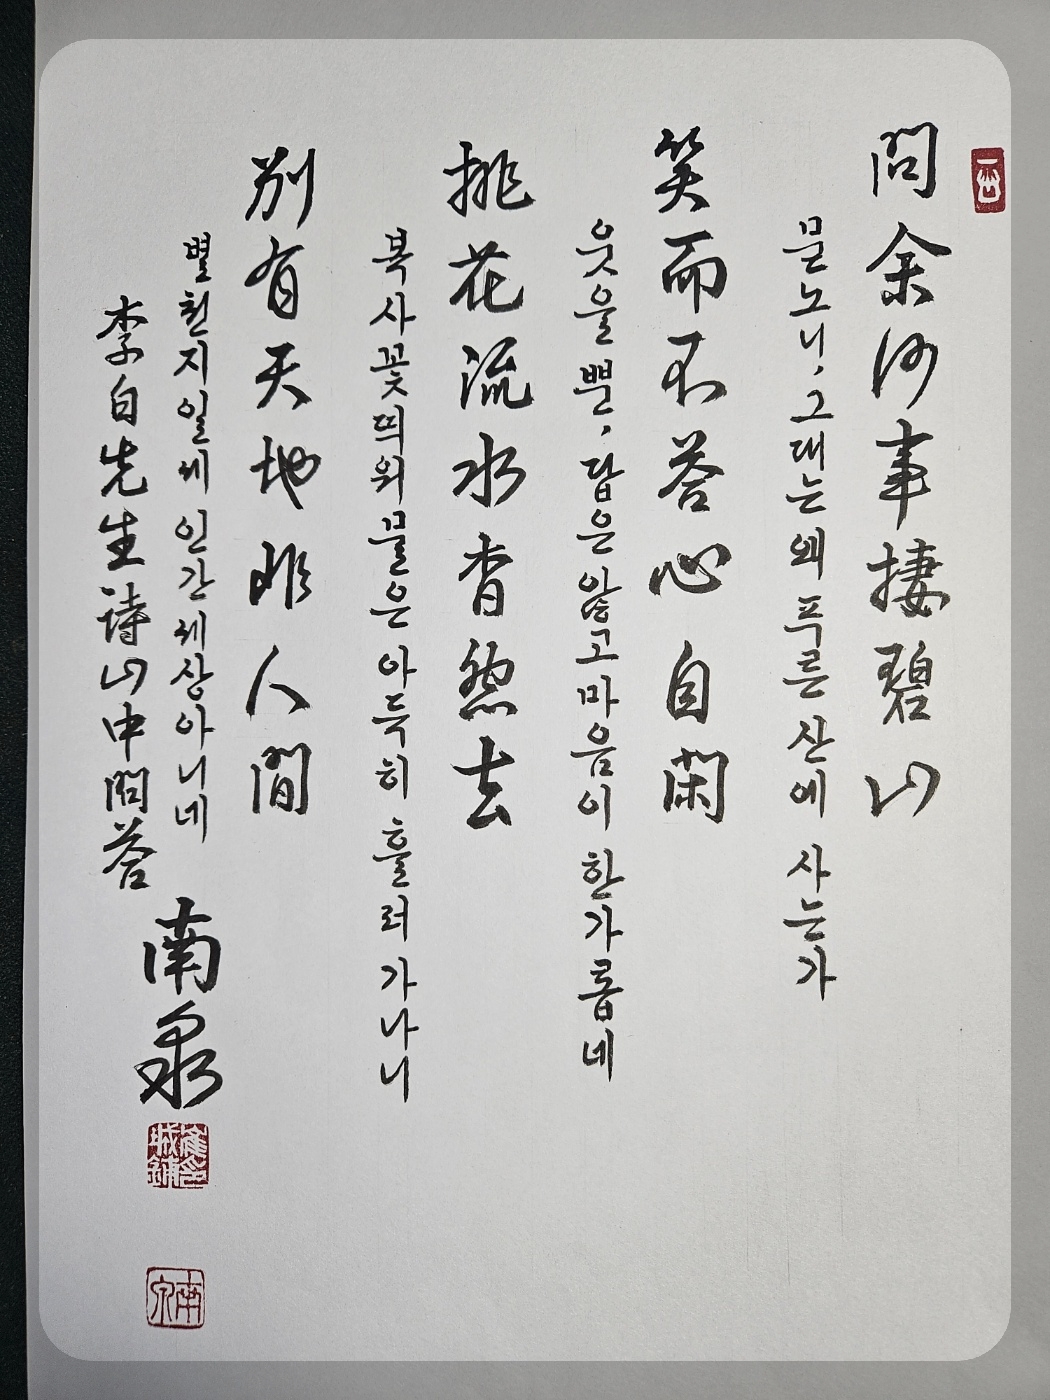 問余何事棲碧山
물노니, 그대는 왜 푸른 산에 사는가
笑而不答心自閑
웃을 뿐, 답은 않고 마음이 한가롭네
桃花流水杳然去
복사꽃 띄워 물은 아득히 흘러가나니
別有天地非人間
별천지일세 인간세상 아니네
李白先生詩山中問答
南泉
南泉